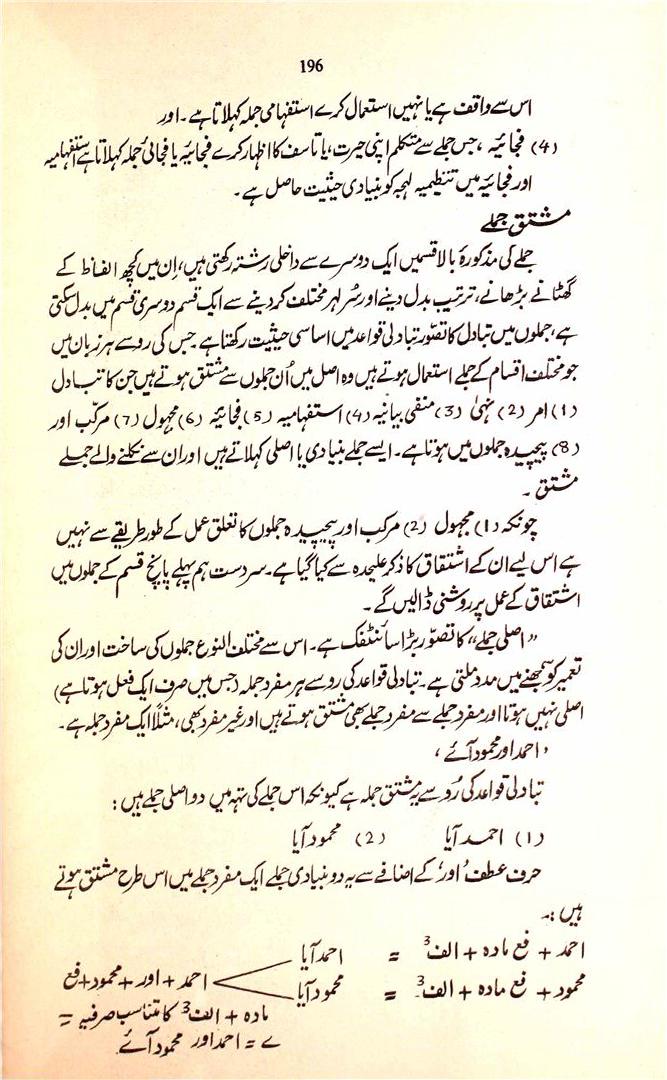 196
اس سے واقف ہے یا نہیں استعمال کرے استفہامی جملہ کہلاتا ہے۔ اور
(4) فجائیہ، جس جملے سے متکلم اپنی حیرت، یا تاسف کا اظہار کرے فجائیہ یا فجائی جملہ کہلاتا ہے استفہامیہ
اور فجائیہ میں تنظیمیہ لہجہ کو بنیادی حیثیت حاصل ہے۔
مشتق جملے
جملے کی مذکورۂ بالا قسمیں ایک دوسرے سے داخلی رشتہ رکھتی ہیں، اِن میں کچھ الفاظ کے
گھٹانے بڑھانے، ترتیب بدل دینے اور سُر لہر مختلف کر دینے سے ایک قسم دوسری قسم میں بدل سکتی
ہے، جملوں میں تبادل کا تصوّر تبادلی قواعد میں اساسی حیثیت رکھتا ہے جس کی رو سے ہر زبان میں
جو مختلف اقسام کے جملے استعمال ہوتے ہیں وہ اصل میں اُن جملوں سے مشتق ہوتے ہیں جن کا تبادل
(1) امر (2) نہیٰ (3) منفی بیانیہ (4) استفہامیہ (5) فجائیہ (6) مجہول (7) مرکب اور
(8) پیچیدہ جملوں میں ہوتا ہے۔ ایسے جملے بنیادی یا اصلی کہلاتے ہیں اور ان سے نکلنے والے جملے
مشتق۔
چونکہ (1) مجہول (2) مرکب اور پیچیدہ جملوں کا تعلق عمل کے طور طریقے سے نہیں
ہے اس لیے ان کے اشتقاق کا ذکر علیحدہ سے کیا گیا ہے۔ سردست ہم پہلے پانچ قسم کے جملوں میں
اشتقاق کے عمل پر روشنی ڈالیں گے۔
"اصلی جملے" کا تصوّر بڑا سائنٹفک ہے۔ اس سے مختلف النوع جملوں کی ساخت اور اِن کی
تعمیر کو سمجھنے میں مدد ملتی ہے۔ تبادلی قواعد کی رو سے ہر مفرد جملہ (جس میں صرف ایک فعل ہوتا ہے)
اصلی نہیں ہوتا اور مفرد جملے سے مفرد جملے بھی مشتق ہوتے ہیں اور غیر مفرد بھی، مثلاً ایک مفرد جملہ ہے۔
'احمد اور محمود آئے،
تبادلی قواعد کی رُو سے یہ مشتق جملہ ہے کیونکہ اس جملے کی تہہ میں دو اصلی جملے ہیں:
(1) احمد آیا (2) محمود آیا
حرف عطف 'اور' کے اضافے سے یہ دو بنیادی جملے ایک مفرد جملے میں اس طرح مشتق ہوتے
ہیں:۔
احمد + فع مادہ + الف3 = احمد آیا
محمود + فع مادہ + الف3 = محمود آیا
احمد + اور + محمود + فع
مادہ + الف3 کا متناسب صرفیہ =
ے = احمد اور محمود آئے۔